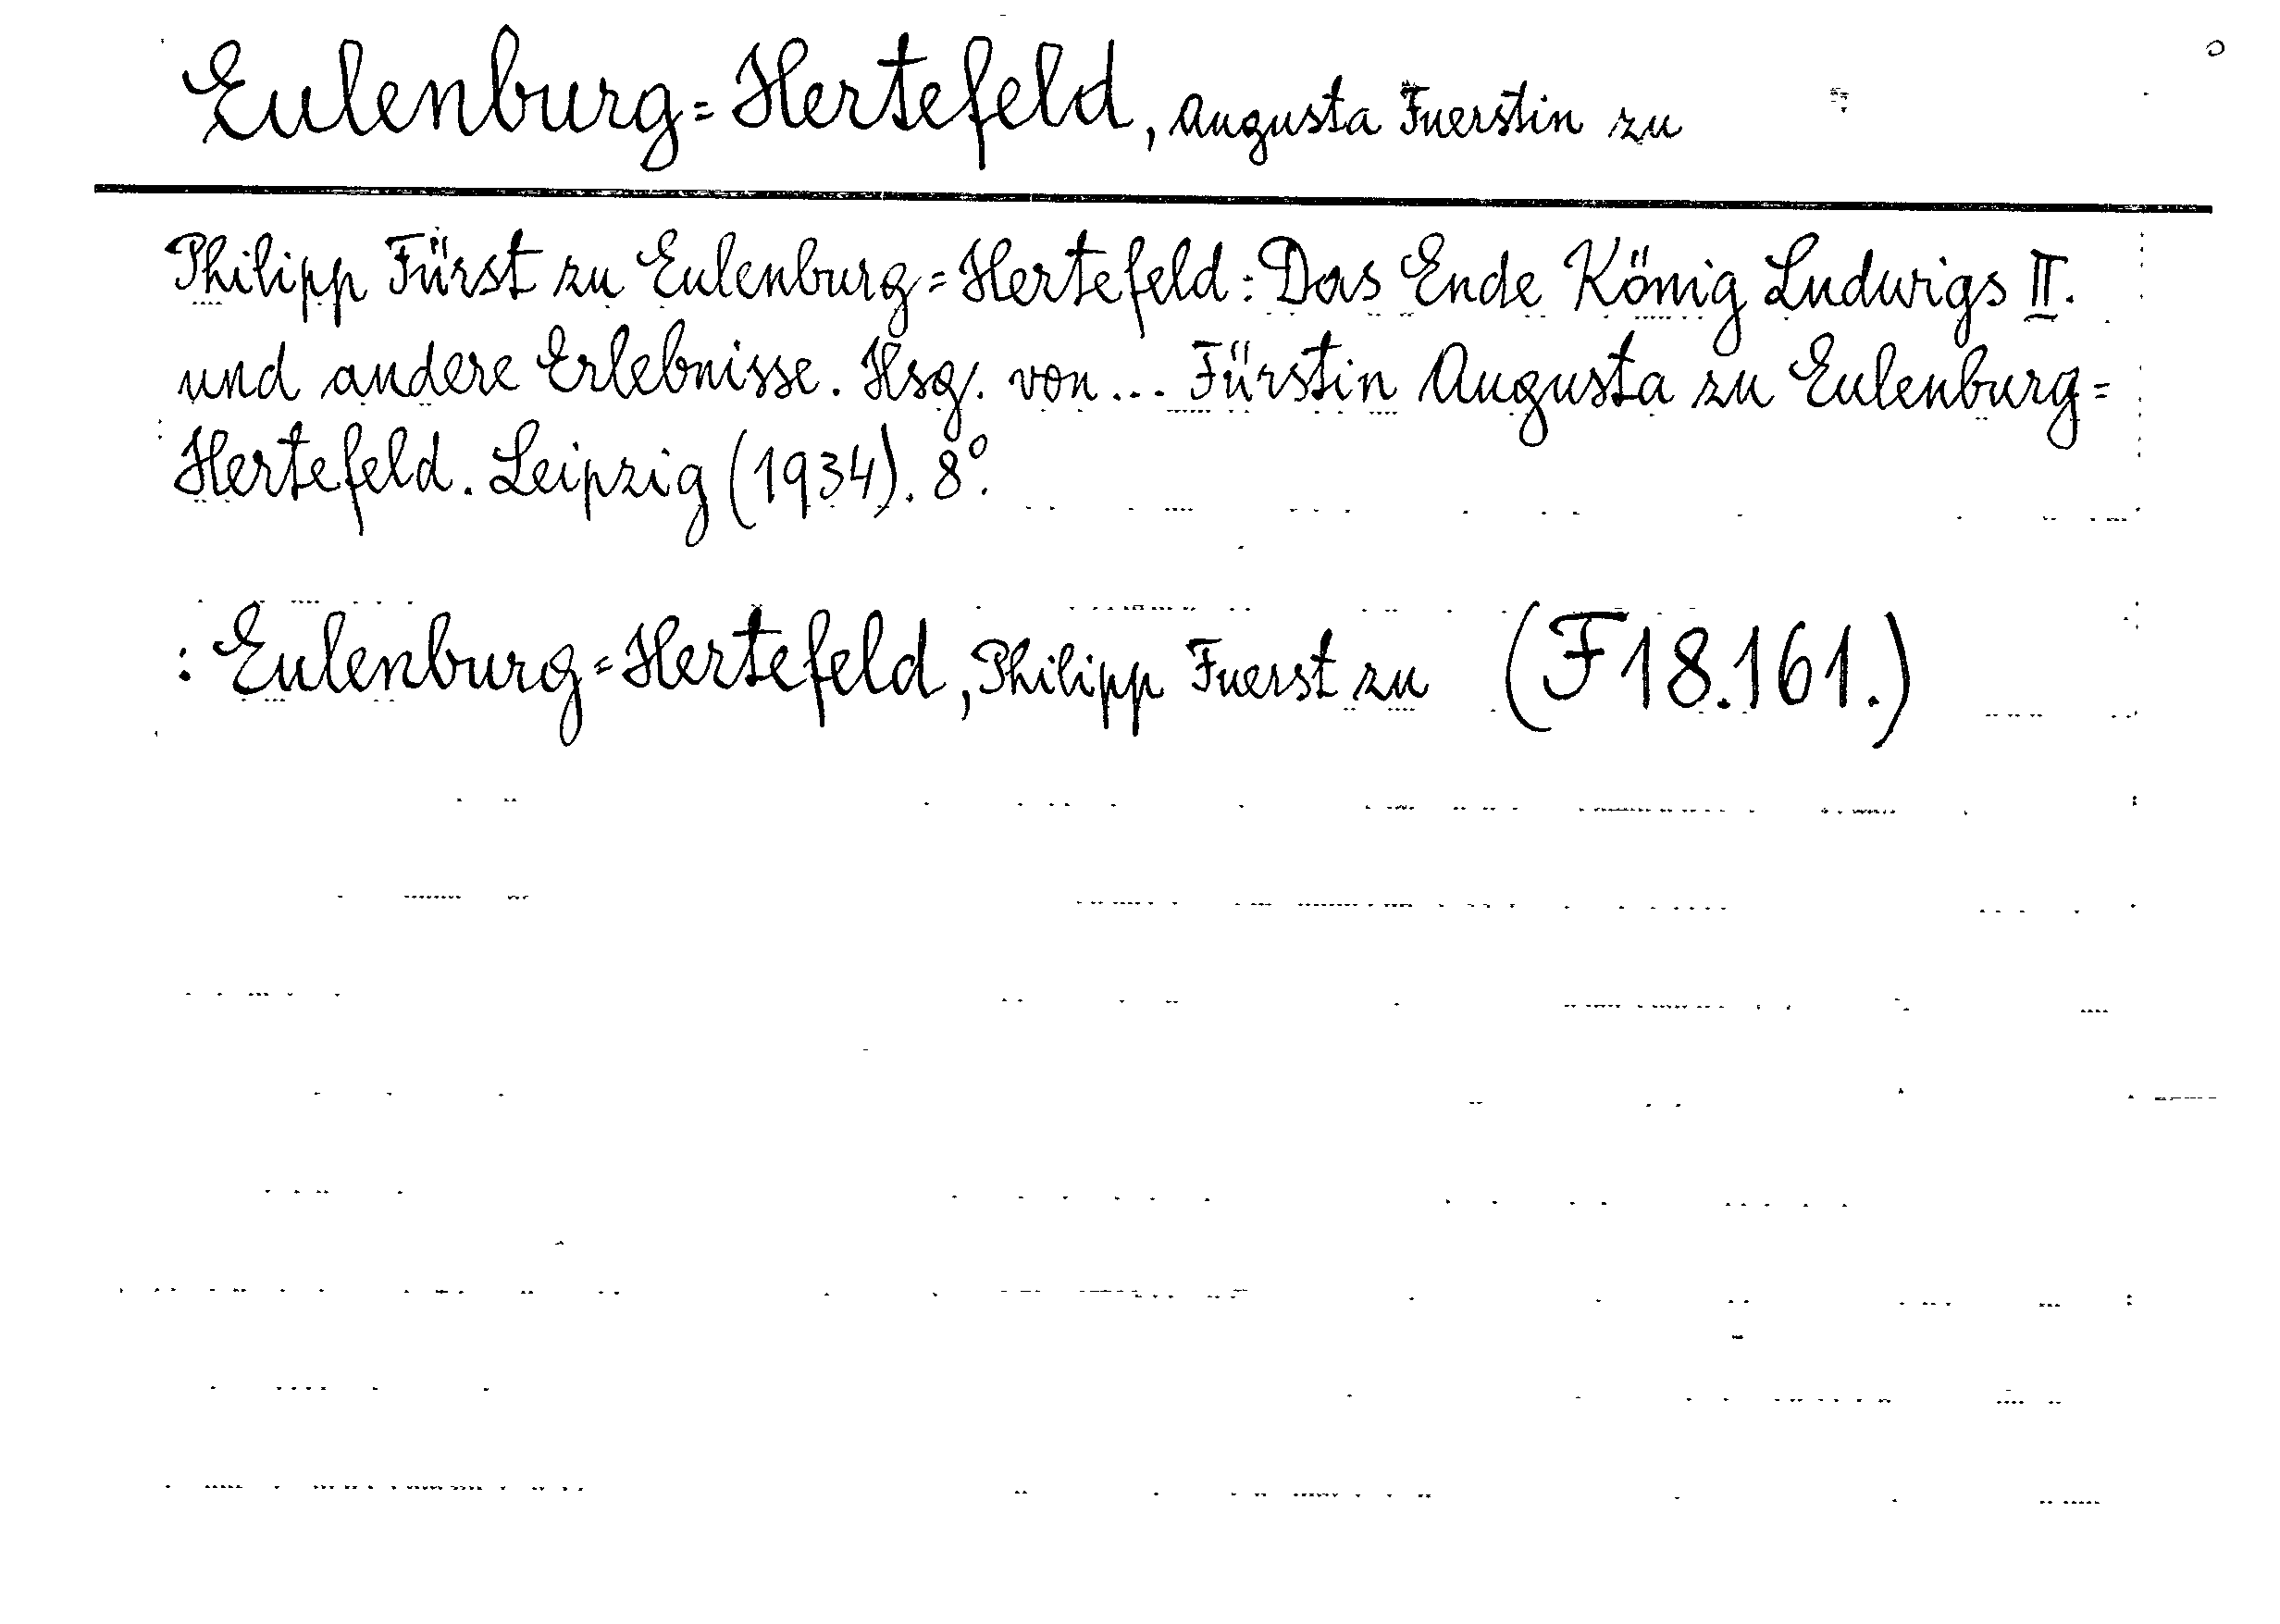 Eulenburg=Hertefeld, Augusta Fuerstin zu
Philipp Fürst zu Eulenburg=Hertefeld: Das Ende König Ludwigs II.
und andere Erlebnisse. Hsg. von ... Fürstin Augusta zu Eulenburg=
Hertefeld. Leipzig (1934). 8°.
: Eulenburg=Hertefeld, Philipp Fuerst zu (F 18.161.)